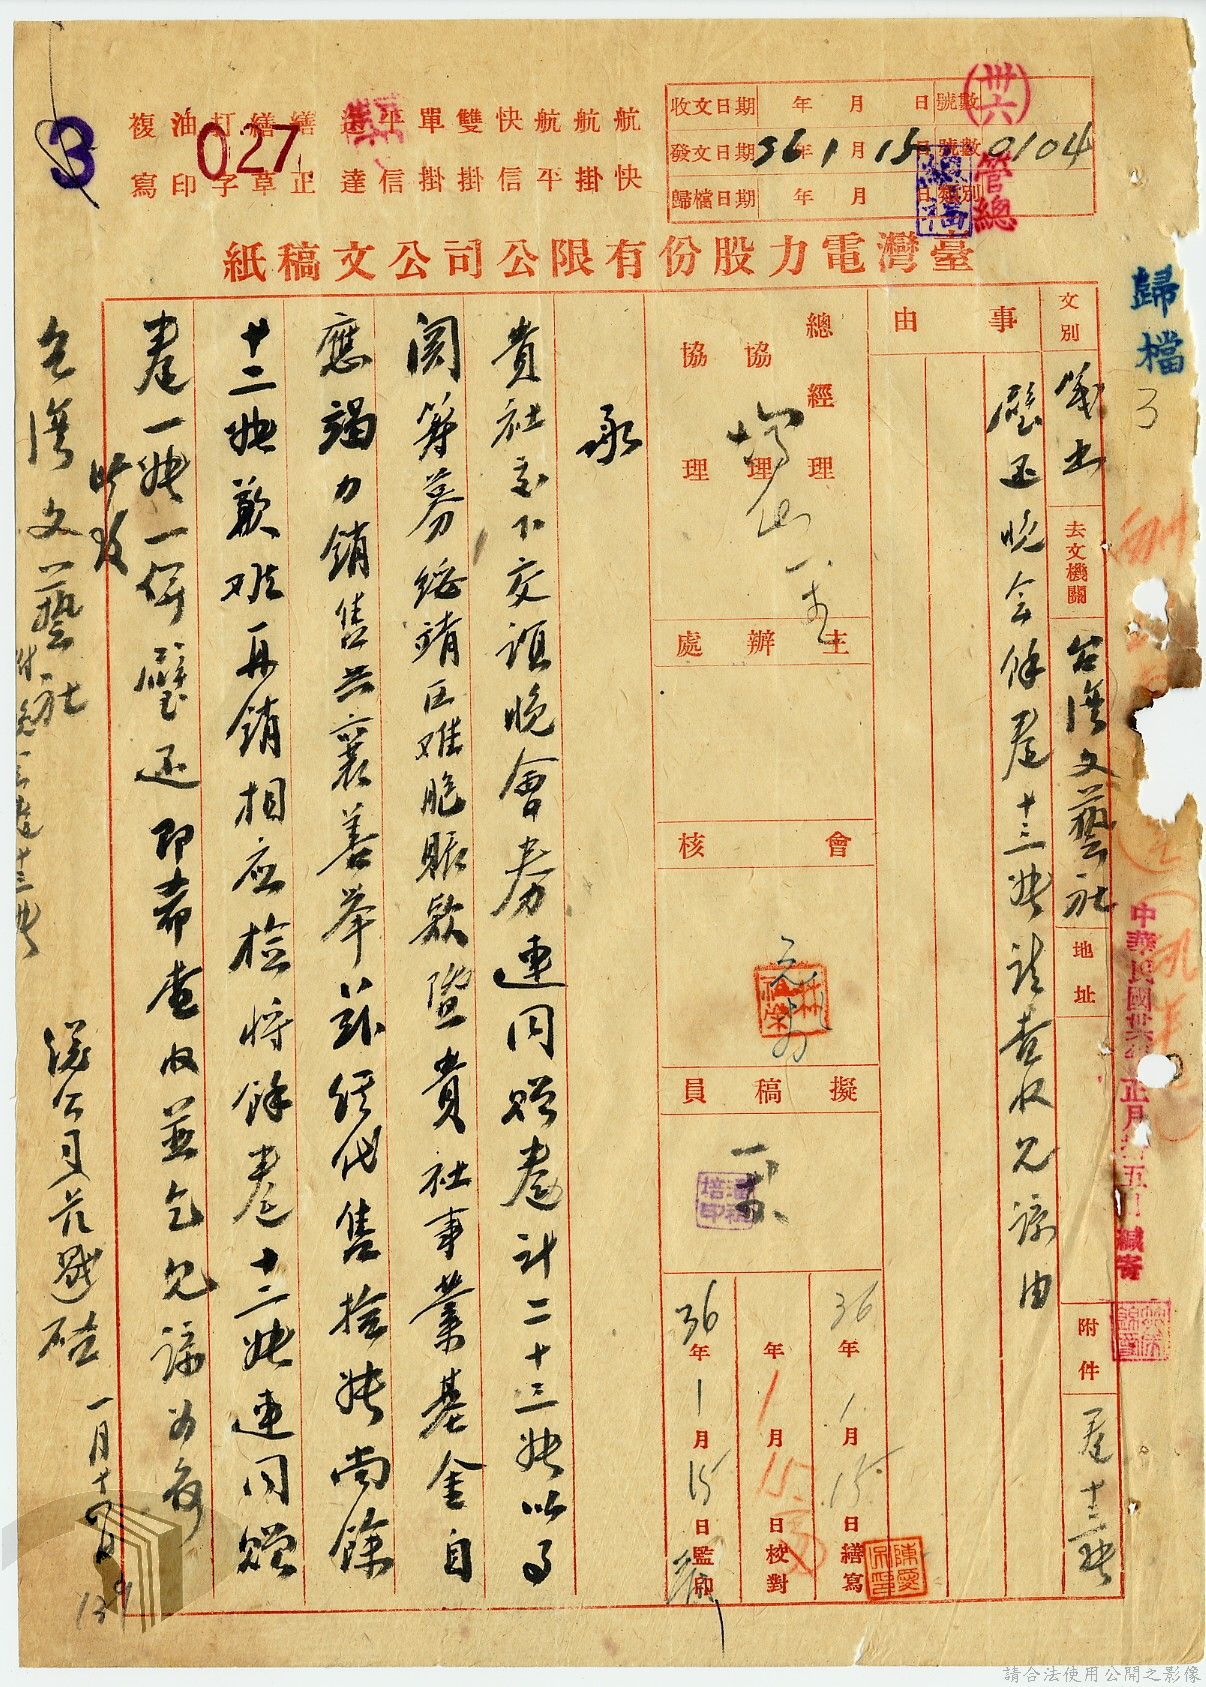 3
027
複寫
油印
打字
繕草
繕正
平信
單掛
雙掛
快信
航平
航掛
航快
收文日期 年 月 日 號數
發文日期 36年1月15日 號數 0104
歸檔日期 年 月 日 類別
(卅六)
管總
臺灣電力股份有限公司公文稿紙
歸檔
3
文別 箋出
去文機關 台灣文藝社
地址
附件 券十三張
事由
璧還晚會餘券十三張請查收見諒由
總經理
協理
協理
主辦處
會核
擬稿員
36年1月15日繕寫
年1月15日校對
36年1月15日監印
中華民國卅六年正月拾五日緘寄
承
貴社交下交誼晚會券連同贈券計二十三張以為
閱籌募綏靖區難胞賑款暨貴社事業基金自
應竭力銷售共襄善舉茲經代售拾張尚餘
十二張歉難再銷相應檢將餘券十二張連同贈
券一張一併璧還即希查收並乞見諒為荷
此致
台灣文藝社
附免一券十三張
總公司
啟 一月十四日
請合法使用公開之影像